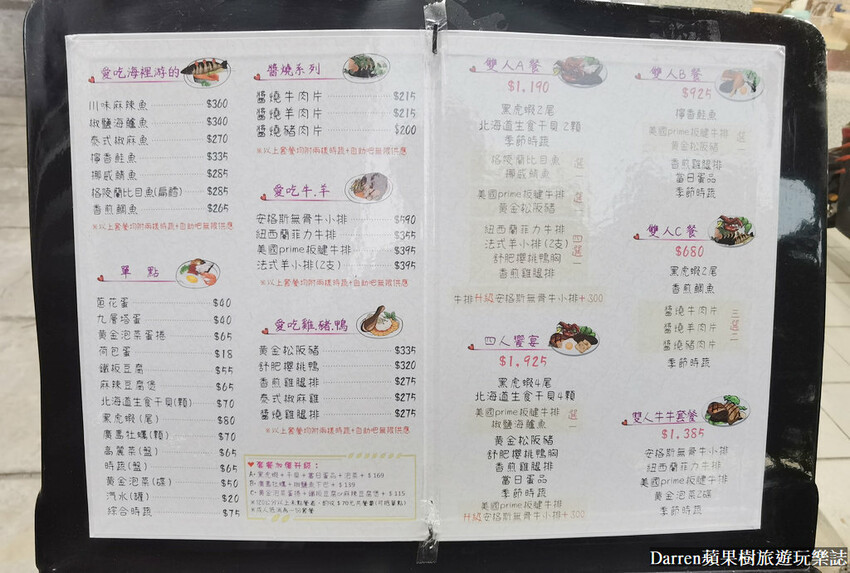 愛吃海裡游的
川味麻辣魚 $360
椒鹽海鱸魚 $340
泰式椒麻魚 $270
檸香鮭魚 $335
挪威鯖魚 $285
格陵蘭比目魚(扁鱈) $285
香煎鯛魚 $265
※以上套餐均附兩樣時蔬+自助吧無限供應
單 點
蔥花蛋 $40
九層塔蛋 $40
黃金泡菜蛋捲 $65
荷包蛋 $18
鐵板豆腐 $55
麻辣豆腐煲 $65
北海道生食干貝(顆) $70
黑虎蝦(尾) $80
廣島牡蠣(顆) $70
高麗菜(盤) $65
時蔬(盤) $65
黃金泡菜(碟) $50
汽水(罐) $20
綜合時蔬 $75
醬燒系列
醬燒牛肉片 $215
醬燒羊肉片 $215
醬燒豬肉片 $200
※以上套餐均附兩樣時蔬+自助吧無限供應
愛吃牛.羊
安格斯無骨牛小排 $590
紐西蘭菲力牛排 $355
美國prime板腱牛排 $395
法式羊小排(2支) $395
※以上套餐均附兩樣時蔬+自助吧無限供應
愛吃雞.豬.鴨
黃金松阪豬 $335
舒肥櫻桃鴨 $320
香煎雞腿排 $275
泰式椒麻雞 $275
醬燒雞腿排 $275
※以上套餐均附兩樣時蔬+自助吧無限供應
套餐加價升級：
A.黑虎蝦+干貝+當日蛋品+泡菜+$169
B.廣島牡蠣+椒鹽魚下巴+$139
C.黃金泡菜蛋捲+鐵板豆腐or麻辣豆腐煲+$115
雙人A餐
$1.190
黑虎蝦2尾
北海道生食干貝 2顆
季節時蔬
格陵蘭比目魚
挪威鯖魚
選一
美國prime板腱牛排
黃金松阪豬
選一
紐西蘭菲力牛排
法式羊小排(2支)
舒肥櫻桃鴨胸
香煎雞腿排
四選一
牛排升級安格斯無骨牛小排+300
四人饗宴
$1.925
黑虎蝦4尾
北海道生食干貝4顆
美國prime板腱牛排
椒鹽海鱸魚
選一
黃金松阪豬
舒肥櫻桃鴨
香煎雞腿排
當日蛋品
季節時蔬
美國prime板腱牛排
升級安格斯無骨牛小排+300
雙人B餐
$925
檸香鮭魚
美國prime板腱牛排
黃金松阪豬
選一
香煎雞腿排
當日蛋品
季節時蔬
雙人C餐
$680
黑虎蝦2尾
香煎鯛魚
醬燒牛肉片
醬燒羊肉片
醬燒豬肉片
三選二
季節時蔬
雙人牛牛套餐
$1.385
安格斯無骨牛小排
紐西蘭菲力牛排
美國prime板腱牛排
黃金泡菜2碟
季節時蔬
Darren蘋果樹旅遊玩樂誌